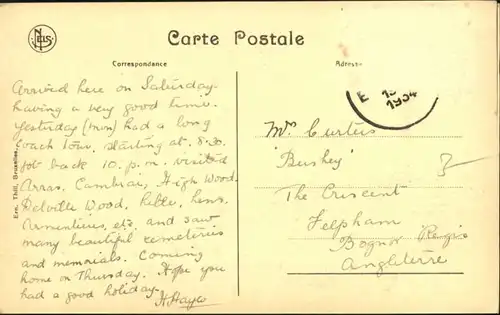 NELS
Carte Postale
Correspondance
Adresse
Arrived here on Saturday.
having a very good time.
Yesterday (mon) had a long
coach tour, starting at 8.30.
got back 10. p.m. visited
Arras, Cambrai, High Wood,
Delville Wood, Lille, Lens,
Armentieres, etc. and saw
many beautiful cemeteries
and memorials. Coming
home on Thursday. Hope you
had a good holiday.
Ern. Thill, Bruxelles.
E 15
1934
Mr. Curteis
"Bushey"
The Crescent
Felpham
Bognor Regis
Angleterre